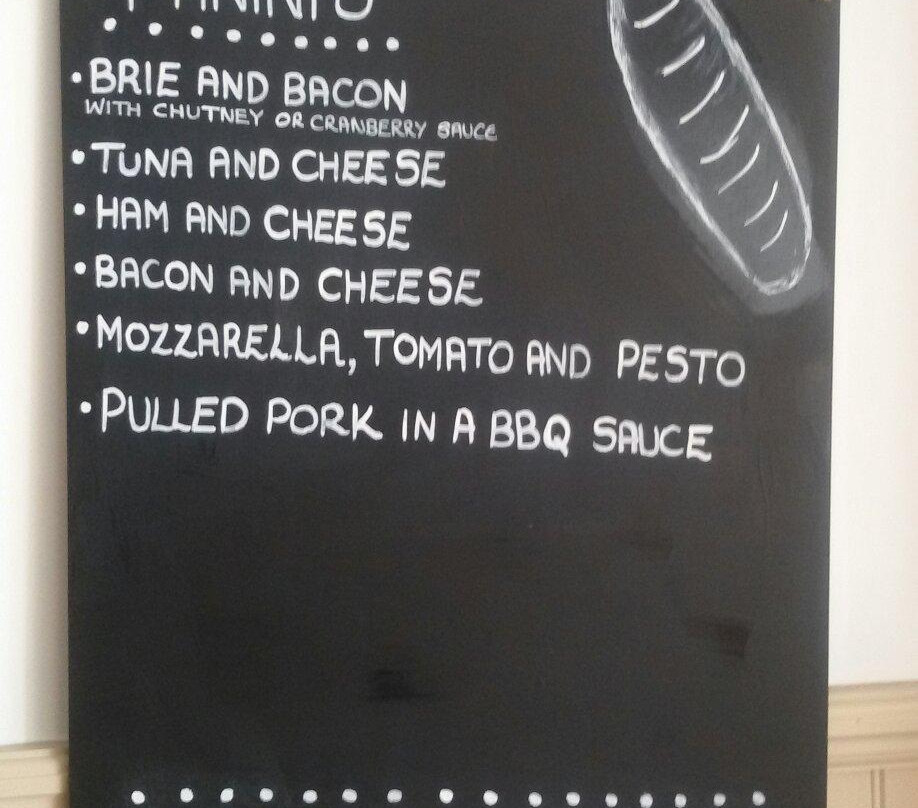 PANINI'S
• BRIE AND BACON
WITH CHUTNEY OR CRANBERRY SAUCE
• TUNA AND CHEESE
• HAM AND CHEESE
• BACON AND CHEESE
• MOZZARELLA, TOMATO AND PESTO
• PULLED PORK IN A BBQ SAUCE